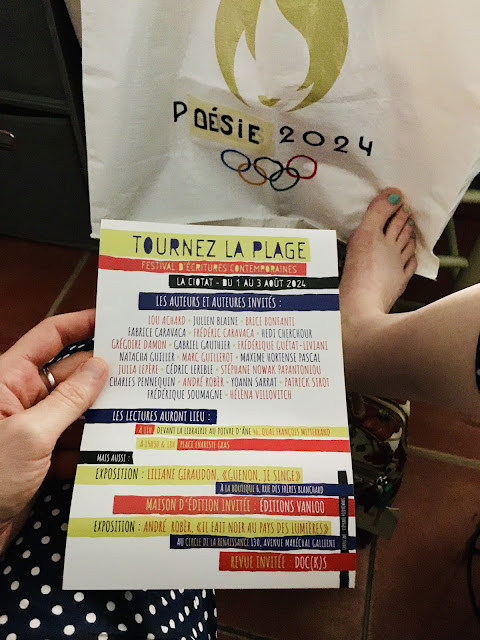 POÉSIE 2024
TOURNEZ LA PLAGE
FESTIVAL D'ÉCRITURES CONTEMPORAINES
LA CIOTAT - DU 1 AU 3 AOÛT 2024
LES AUTEURS ET AUTEURES INVITÉS :
LOU ACHARD - JULIEN BLAINE - BRICE BONFANTI
FABRICE CARAVACA - FRÉDÉRIC CARAVACA - HEDI CHERCHOUR
GRÉGOIRE DAMON - GABRIEL GAUTHIER - FRÉDÉRIQUE GUÉTAT-LIVIANI
NATACHA GUILLER - MARC GUILLEROT - MAXIME HORTENSE PASCAL
JULIA LEPÈRE - CÉDRIC LERIBLE - STÉPHANE NOWAK PAPANTONIOU
CHARLES PENNEQUIN - ANDRÉ ROBÈR - YOANN SARRAT - PATRICK SIROT
FRÉDÉRIQUE SOUMAGNE - HÉLENA VILLOVITCH
LES LECTURES AURONT LIEU :
À 11H DEVANT LA LIBRAIRIE AU POIVRE D'ÂNE QUAI FRANÇOIS MITTERRAND
PLACE EVARISTE GRAS
MAIS AUSSI :
EXPOSITION : LILIANE GIRAUDON, «GUENON, JE SINGE»
À LA BOUTIQUE 6, RUE DES FRÈRES BLANCHARD
MAISON D'ÉDITION INVITÉE : ÉDITIONS VANLOO
EXPOSITION : ANDRÉ ROBÈR, «IL FAIT NOIR AU PAYS DES LUMIÈRES»
AU CERCLE DE LA RENAISSANCE 130, AVENUE MARÉCHAL GALLIENI
REVUE INVITÉE : DOC(K)S